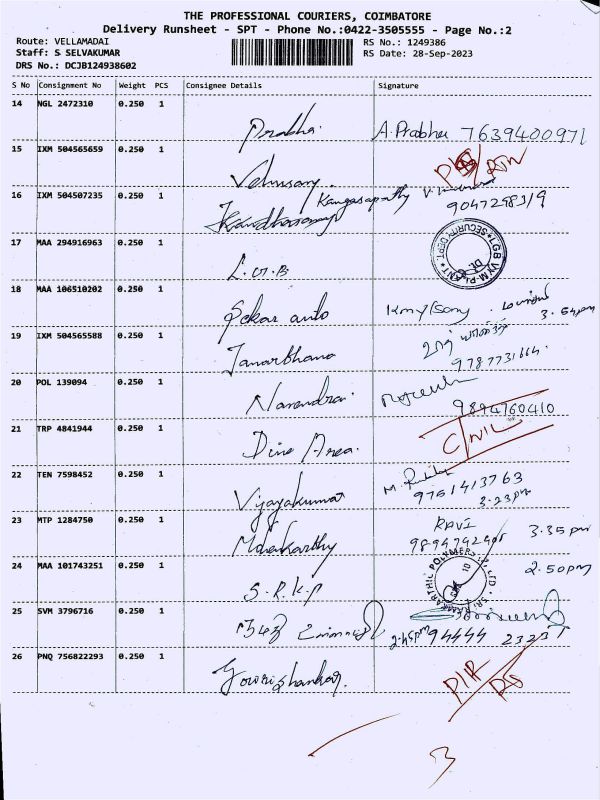 THE PROFESSIONAL COURIERS, COIMBATORE
Delivery Runsheet - SPT - Phone No.:0422-3505555 - Page No.:2
Route: VELLAMADAI
Staff: S SELVAKUMAR
DRS No.: DCJB124938602
RS No.: 1249386
RS Date: 28-Sep-2023
S No Consignment No Weight PCS Consignee Details Signature
14 NGL 2472310 0.250 1
Prabha. A.Prabha 7639400971
15 IXM 504565659 0.250 1
Velusamy.
16 IXM 504507235 0.250 1
Kandhasamy Kangasapathy 9047298319
17 MAA 294916963 0.250 1
L.G.B
LGB VYM.PLANT SECURITY DEPT.
18 MAA 106510202 0.250 1
Sekar auto 3.54pm
19 IXM 504565588 0.250 1
Janarthana 9787731664.
20 POL 139094 0.250 1
Narendra. 9894760410
21 TRP 4841944 0.250 1
Dine Area.
22 TEN 7598452 0.250 1
Vijayakumar 9751413763
3.23pm
23 MTP 1284750 0.250 1
RAVI 3.35pm
24 MAA 101743251 0.250 1
S.R.K.P 2.50pm
25 SVM 3796716 0.250 1
2.45pm 94444 23237
26 PNQ 756822293 0.250 1
Gowrishankar.